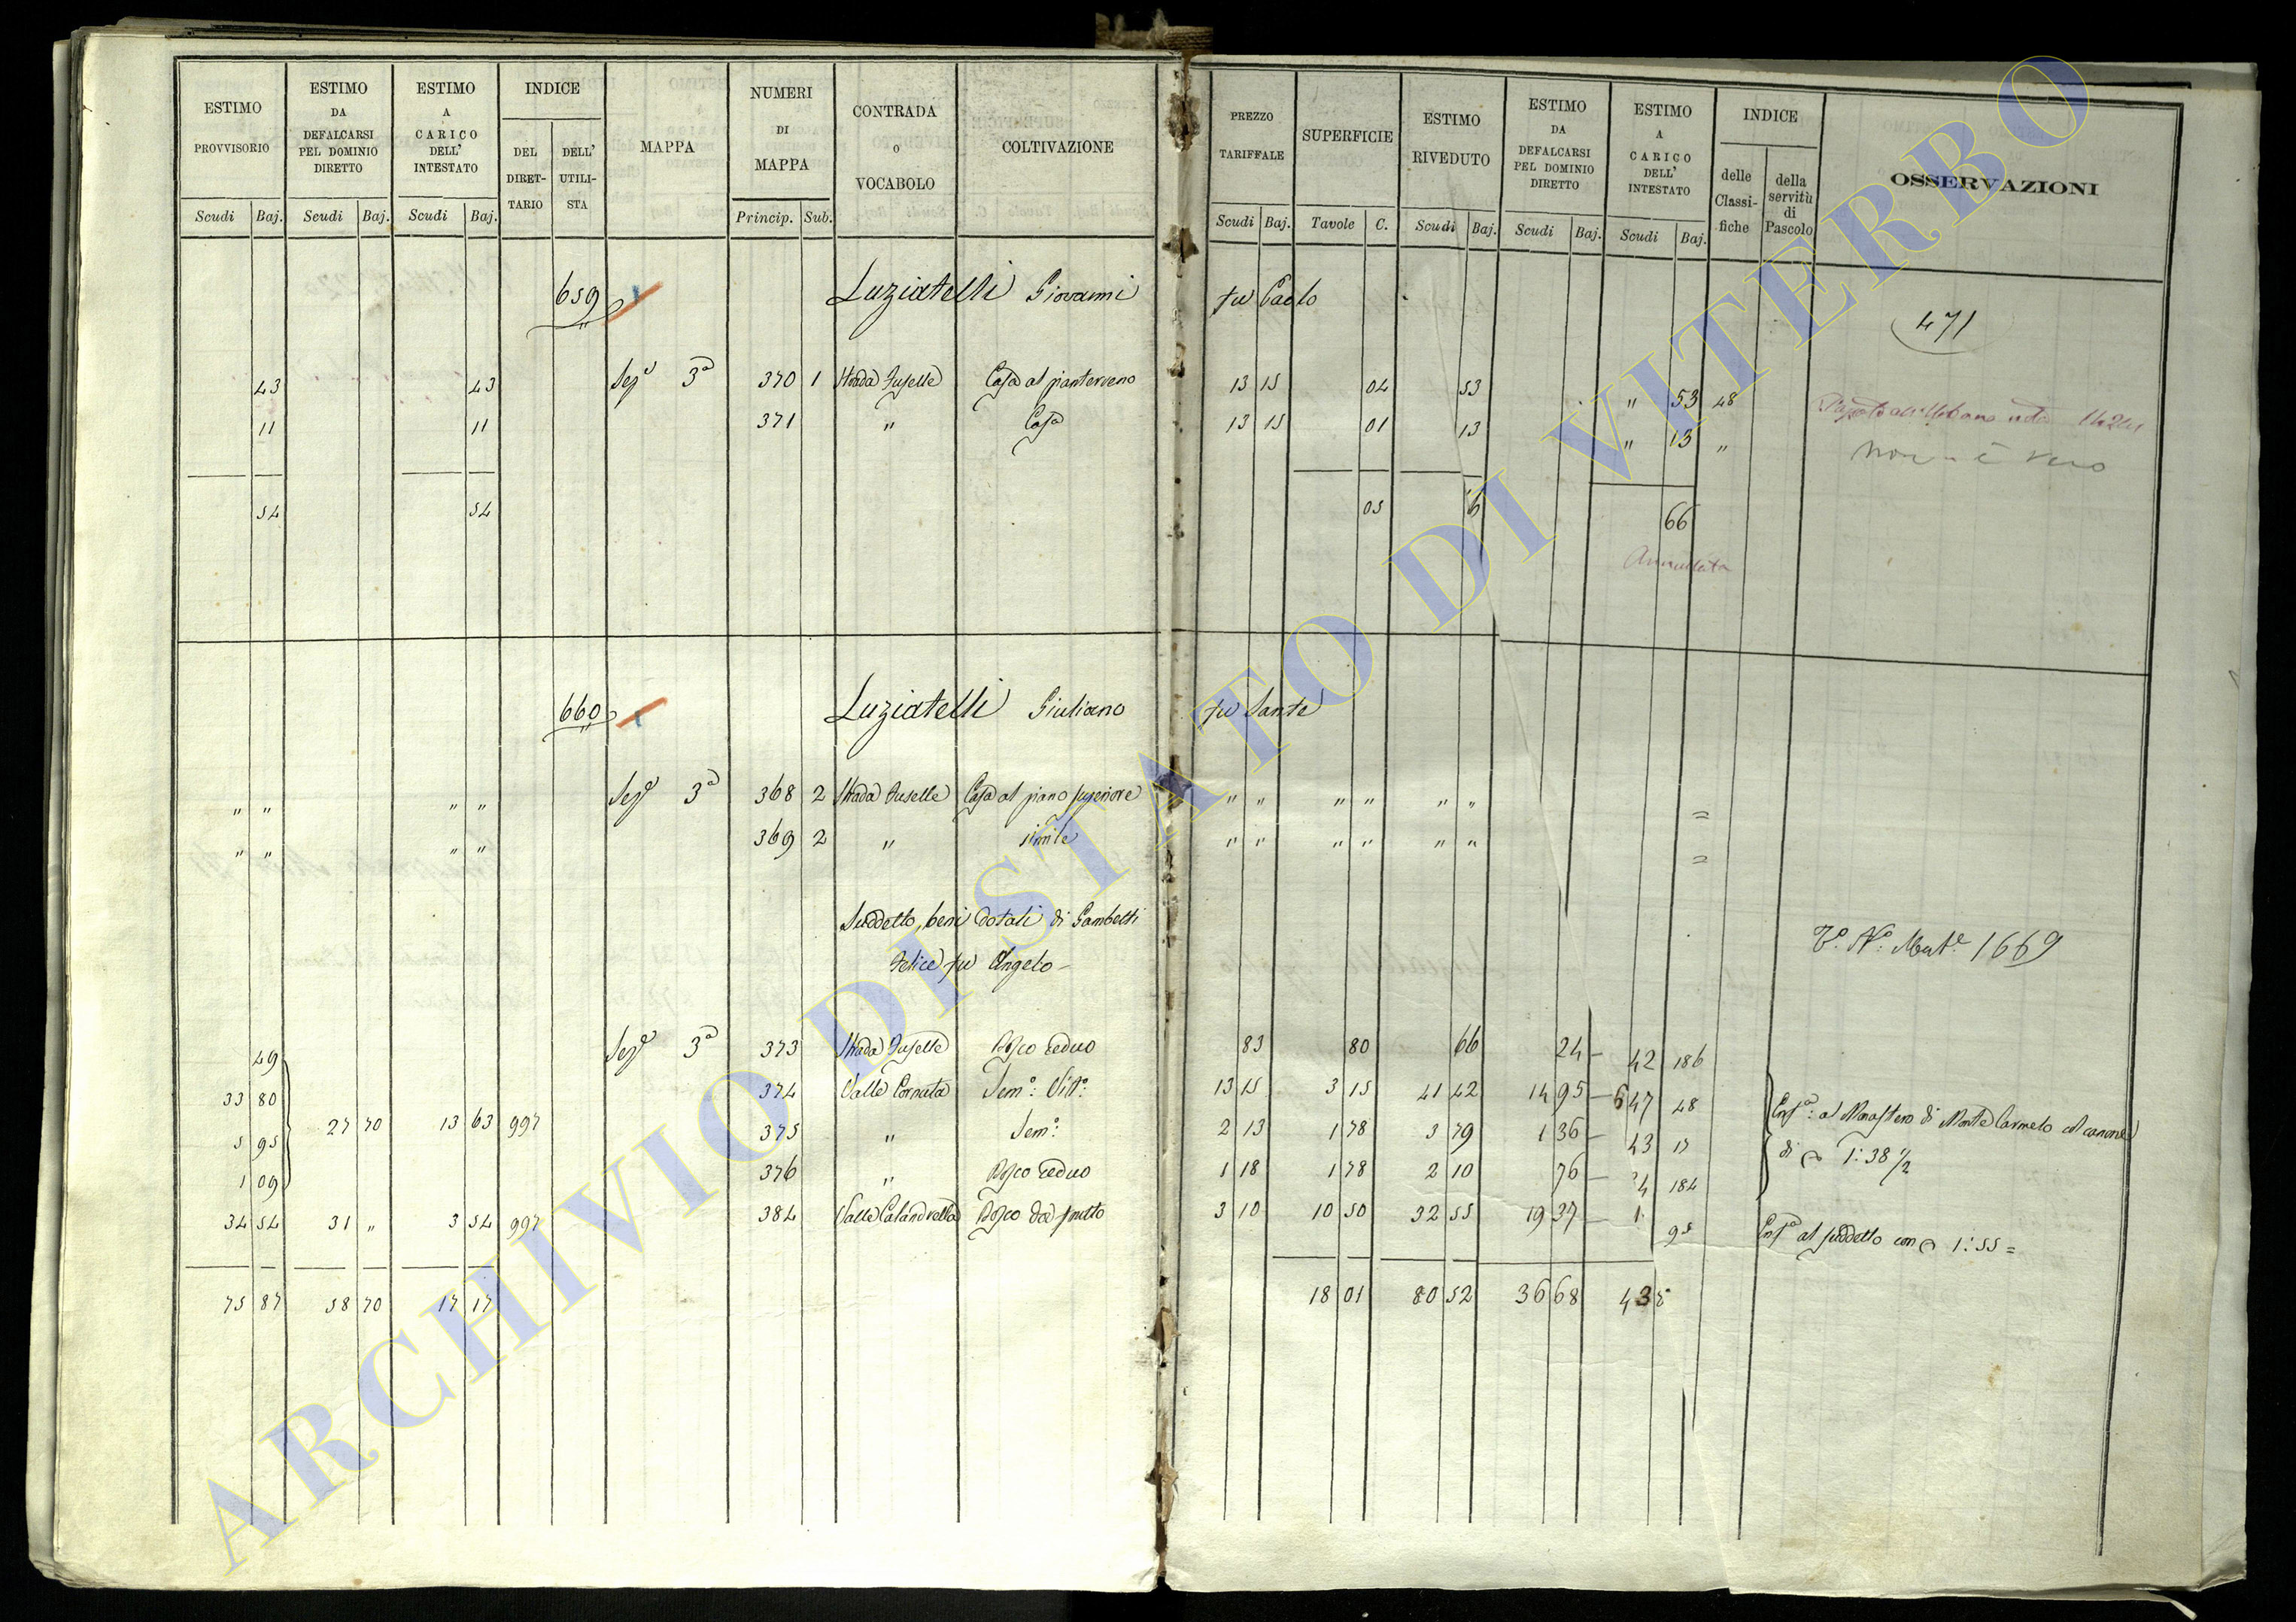 ESTIMO PROVVISORIO Scudi Baj. ESTIMO DA DEFALCARSI PEL DOMINIO DIRETTO Scudi Baj. ESTIMO A CARICO DELL' INTESTATO Scudi Baj. INDICE DEL DIRETTARIO DELL' UTILISTA MAPPA NUMERI DI MAPPA Princip. Sub. CONTRADA O VOCABOLO COLTIVAZIONE
PREZZO TARIFFALE Scudi Baj. SUPERFICIE Tavole C. ESTIMO RIVEDUTO Scudi Baj. ESTIMO DA DEFALCARSI PEL DOMINIO DIRETTO Scudi Baj. ESTIMO A CARICO DELL' INTESTATO Scudi Baj. INDICE delle Classifiche della servitù di Pascolo OSSERVAZIONI
659 Luziatelli Giovanni fu Paolo
471
43 43 Sez.e 3a 370 1 Strada Fuselle Casa al pianterreno 13 15 04 53 " 53 48
11 11 371 " Casa 13 15 01 13 " 13 "
non è vero
54 54 05 66
Annullata
660 Luziatelli Giuliano fu Sante
" " " " Sez.e 3a 368 2 Strada Fuselle Casa al piano superiore " " " " " " =
" " " " 369 2 " simile " " " " " " =
Suddetto, beni dotali di Gambetti
Felice fu Angelo
V.o N.o Mut.e 1669
49 Sez.e 3a 373 Strada Fuselle Bosco ceduo 83 80 66 24 42 186
33 80 374 Valle Cornuta Sem.o: Vit.o: 13 15 3 15 41 42 14 95 47 48
27 70 13 63 997 Enf.a: al Monastero di Monte Carmelo col canone
5 95 375 " Sem.o: 2 13 1 78 3 79 1 36 43 17
di 1:38 1/2
1 09 376 " Bosco ceduo 1 18 1 78 2 10 76 184
34 54 31 " 3 54 997 384 Bosco da frutto 3 10 10 50 32 55 19 37 95 Enf.a al suddetto con 1:55 =
75 87 58 70 17 17 18 01 80 52 36 68
ARCHIVIO DI STATO DI VITERBO